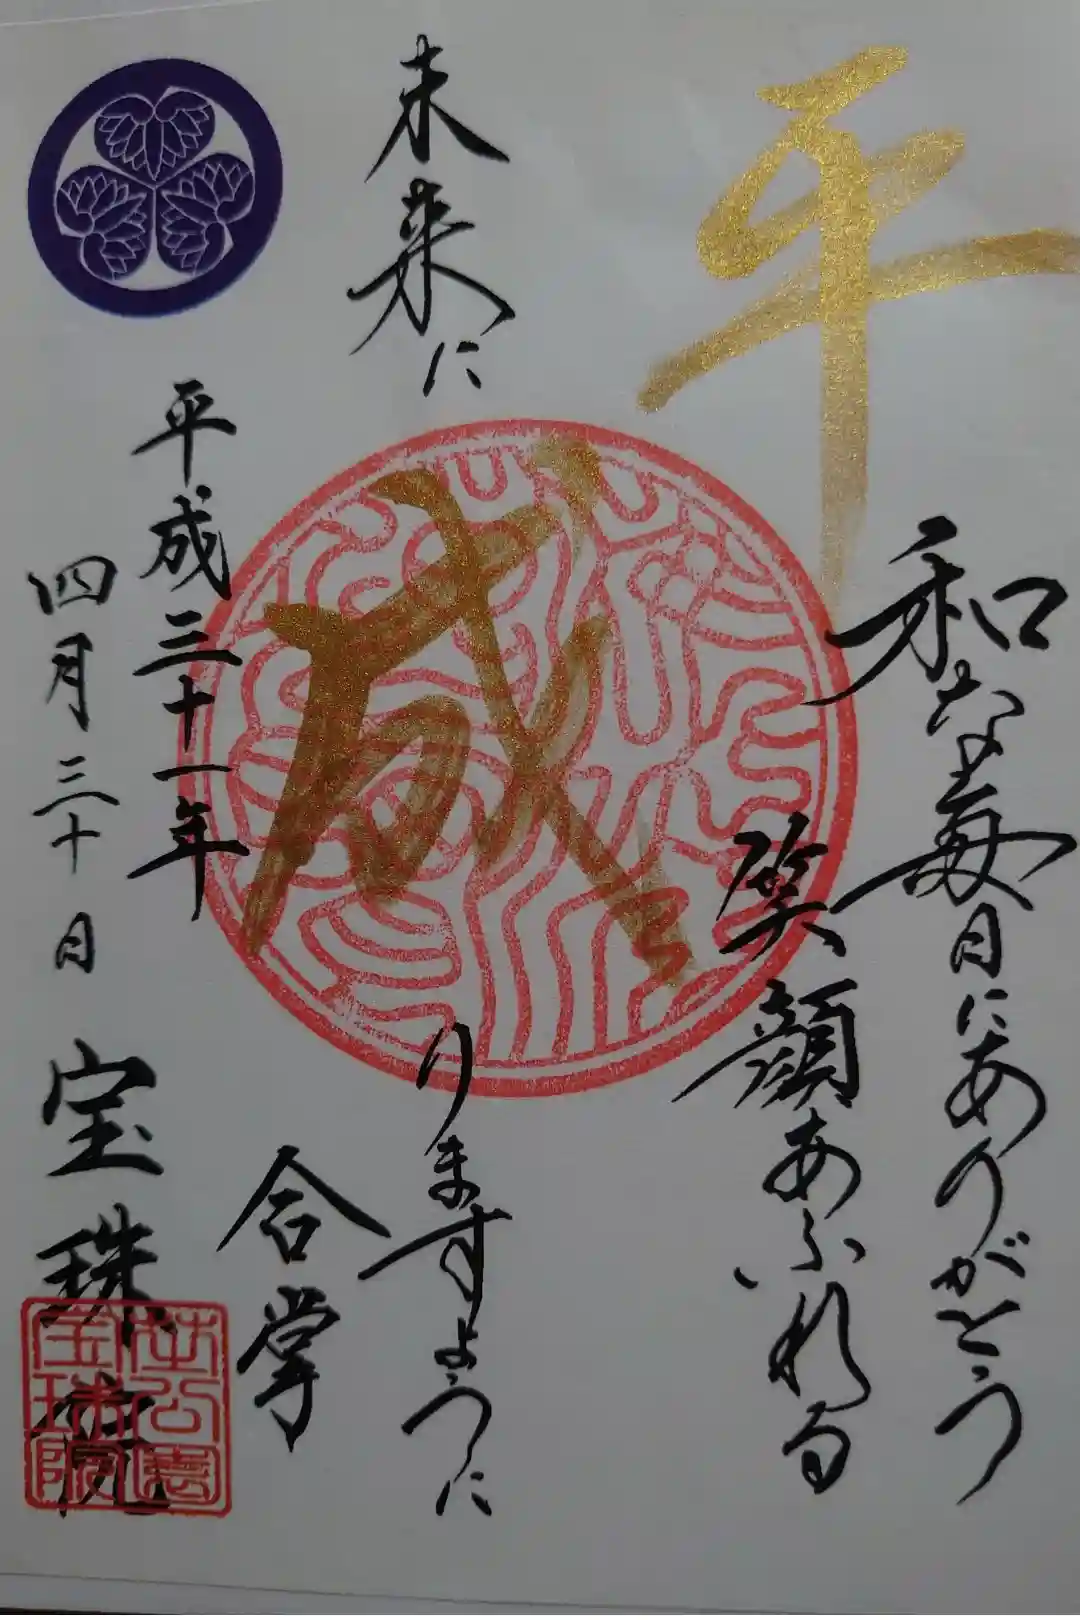 平和な毎日にありがとう
笑顔あふれる
未来に成りますように
合掌
平成三十一年
四月三十日 宝珠院
芝公園
宝珠院